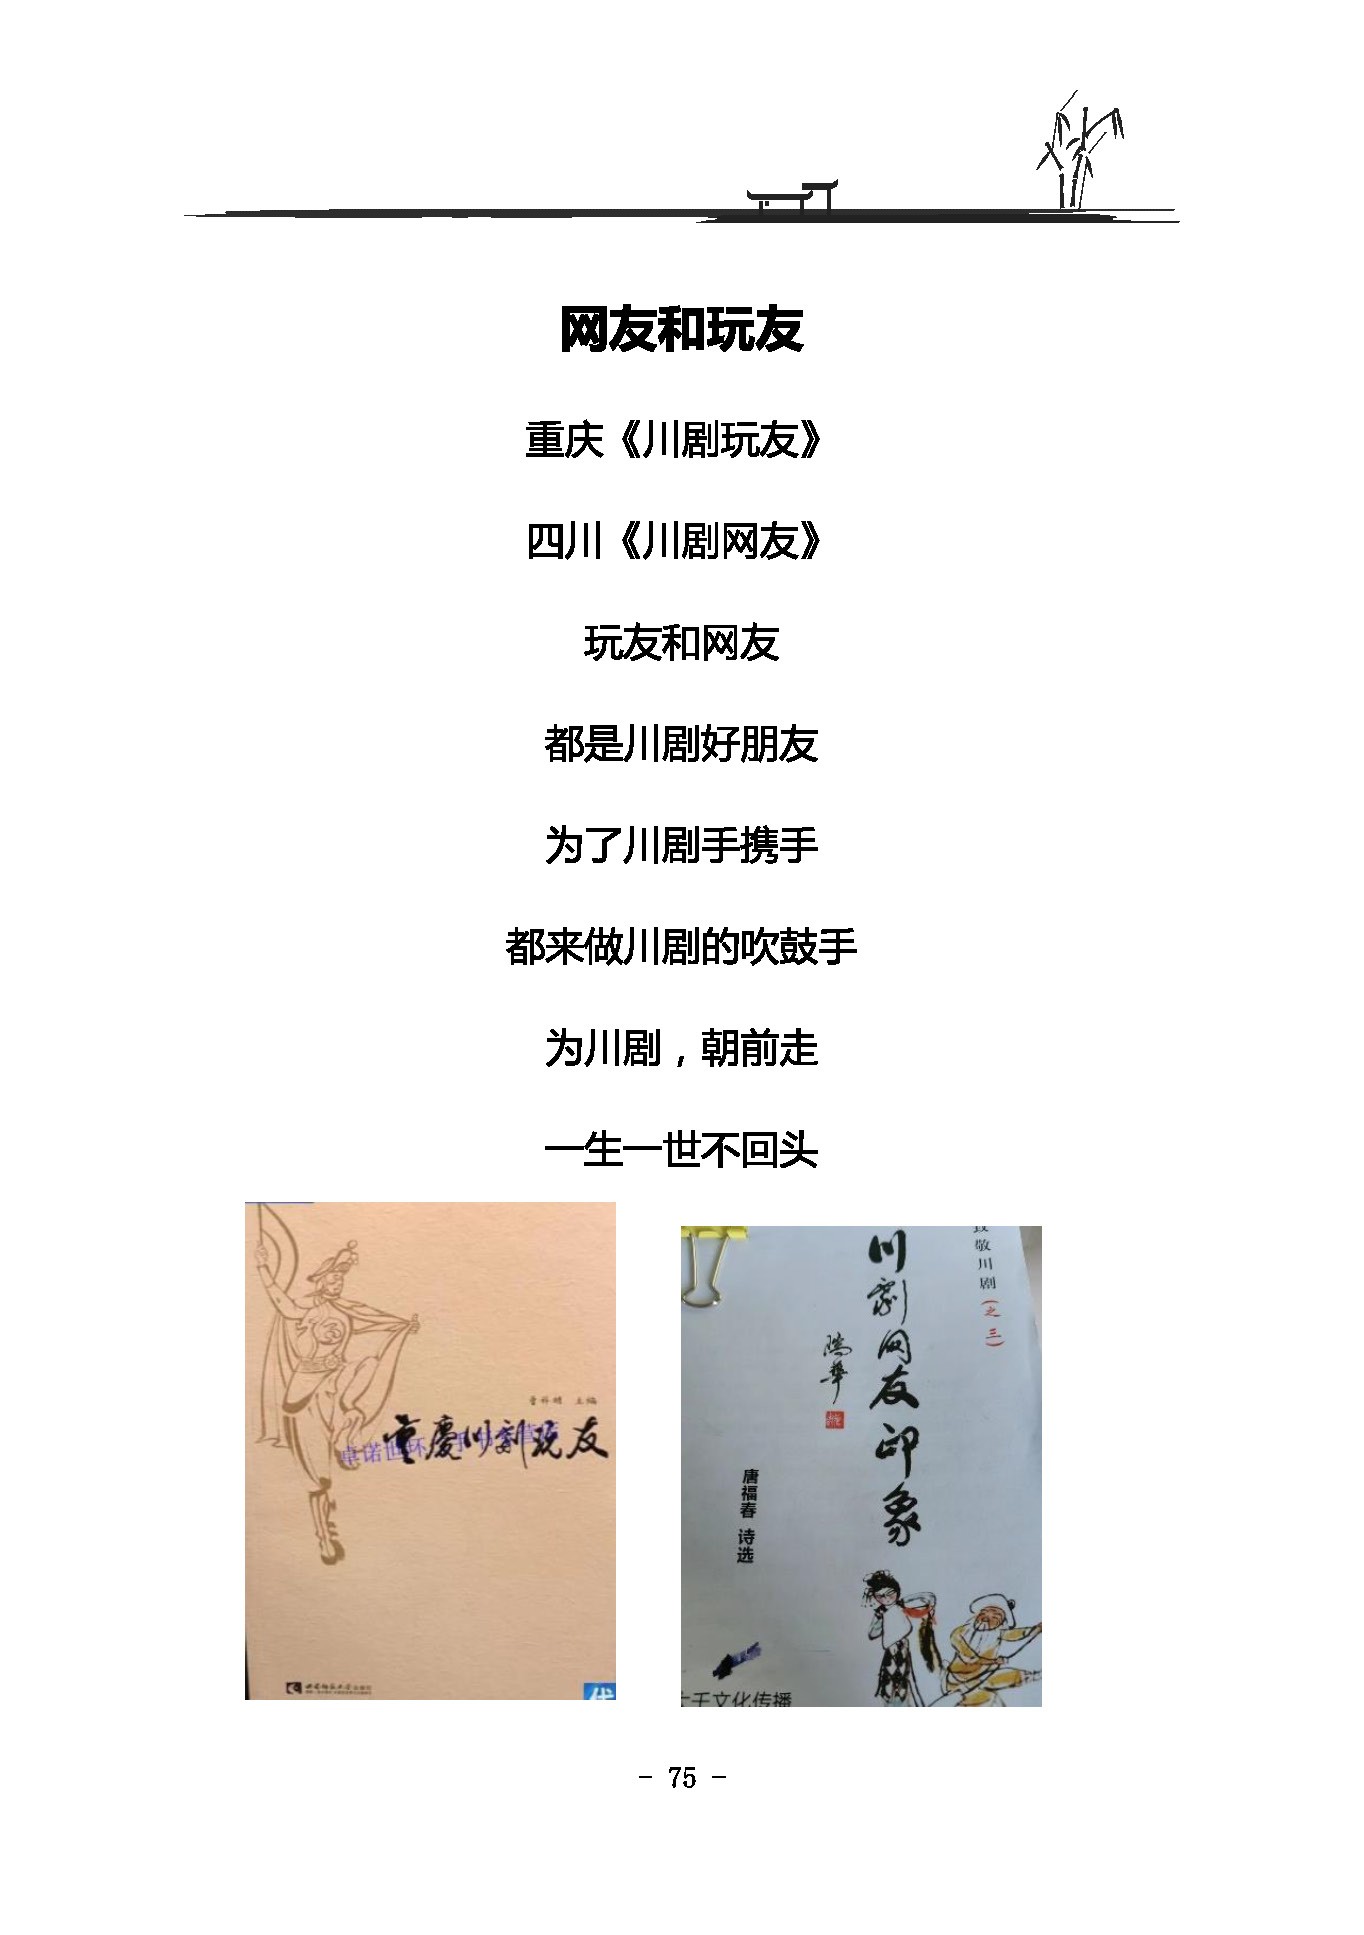 网友和玩友
重庆《川剧玩友》
四川《川剧网友》
玩友和网友
都是川剧好朋友
为了川剧手携手
都来做川剧的吹鼓手
为川剧，朝前走
一生一世不回头
主编
重慶川剧玩友
致敬川剧（之三）
川剧网友印象
唐福春 诗选
文化传播
- 75 -